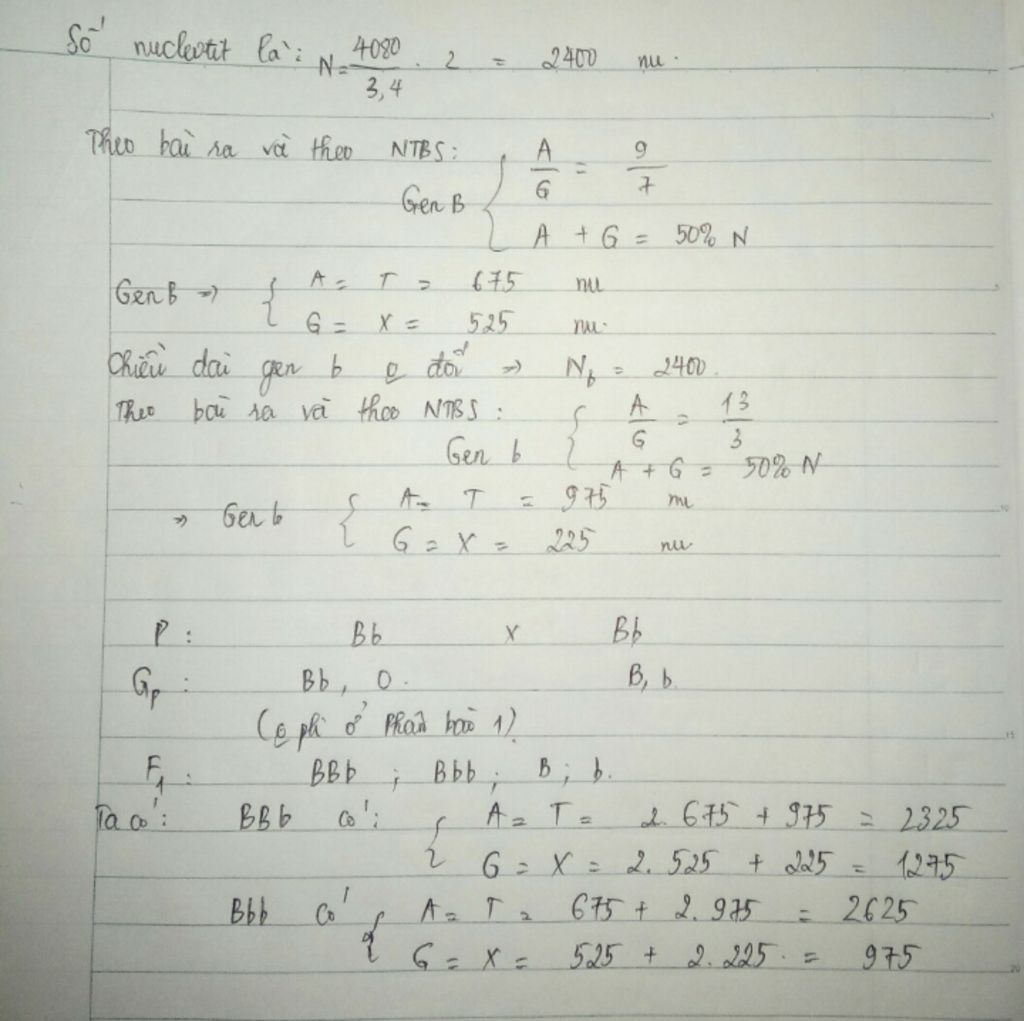 Số nucleotit là: N = 4080/3,4 . 2 = 2400 nu.
Theo bài ra và theo NTBS:
Gen B { A/G = 9/7
A + G = 50% N
Gen B => { A = T = 675 nu
G = X = 525 nu.
Chiều dài gen b o đổi => N_b = 2400.
Theo bài ra và theo NTBS:
Gen b { A/G = 13/3
A + G = 50% N
=> Gen b { A = T = 975 nu
G = X = 225 nu
P : Bb x Bb
G_P : Bb, O. B, b.
(o phli ở Phân bào 1)
F_1 : BBb ; Bbb ; B ; b.
Ta có: BBb có: { A = T = 2. 675 + 975 = 2325
G = X = 2. 525 + 225 = 1275
Bbb có { A = T = 675 + 2. 975 = 2625
G = X = 525 + 2. 225 . = 975